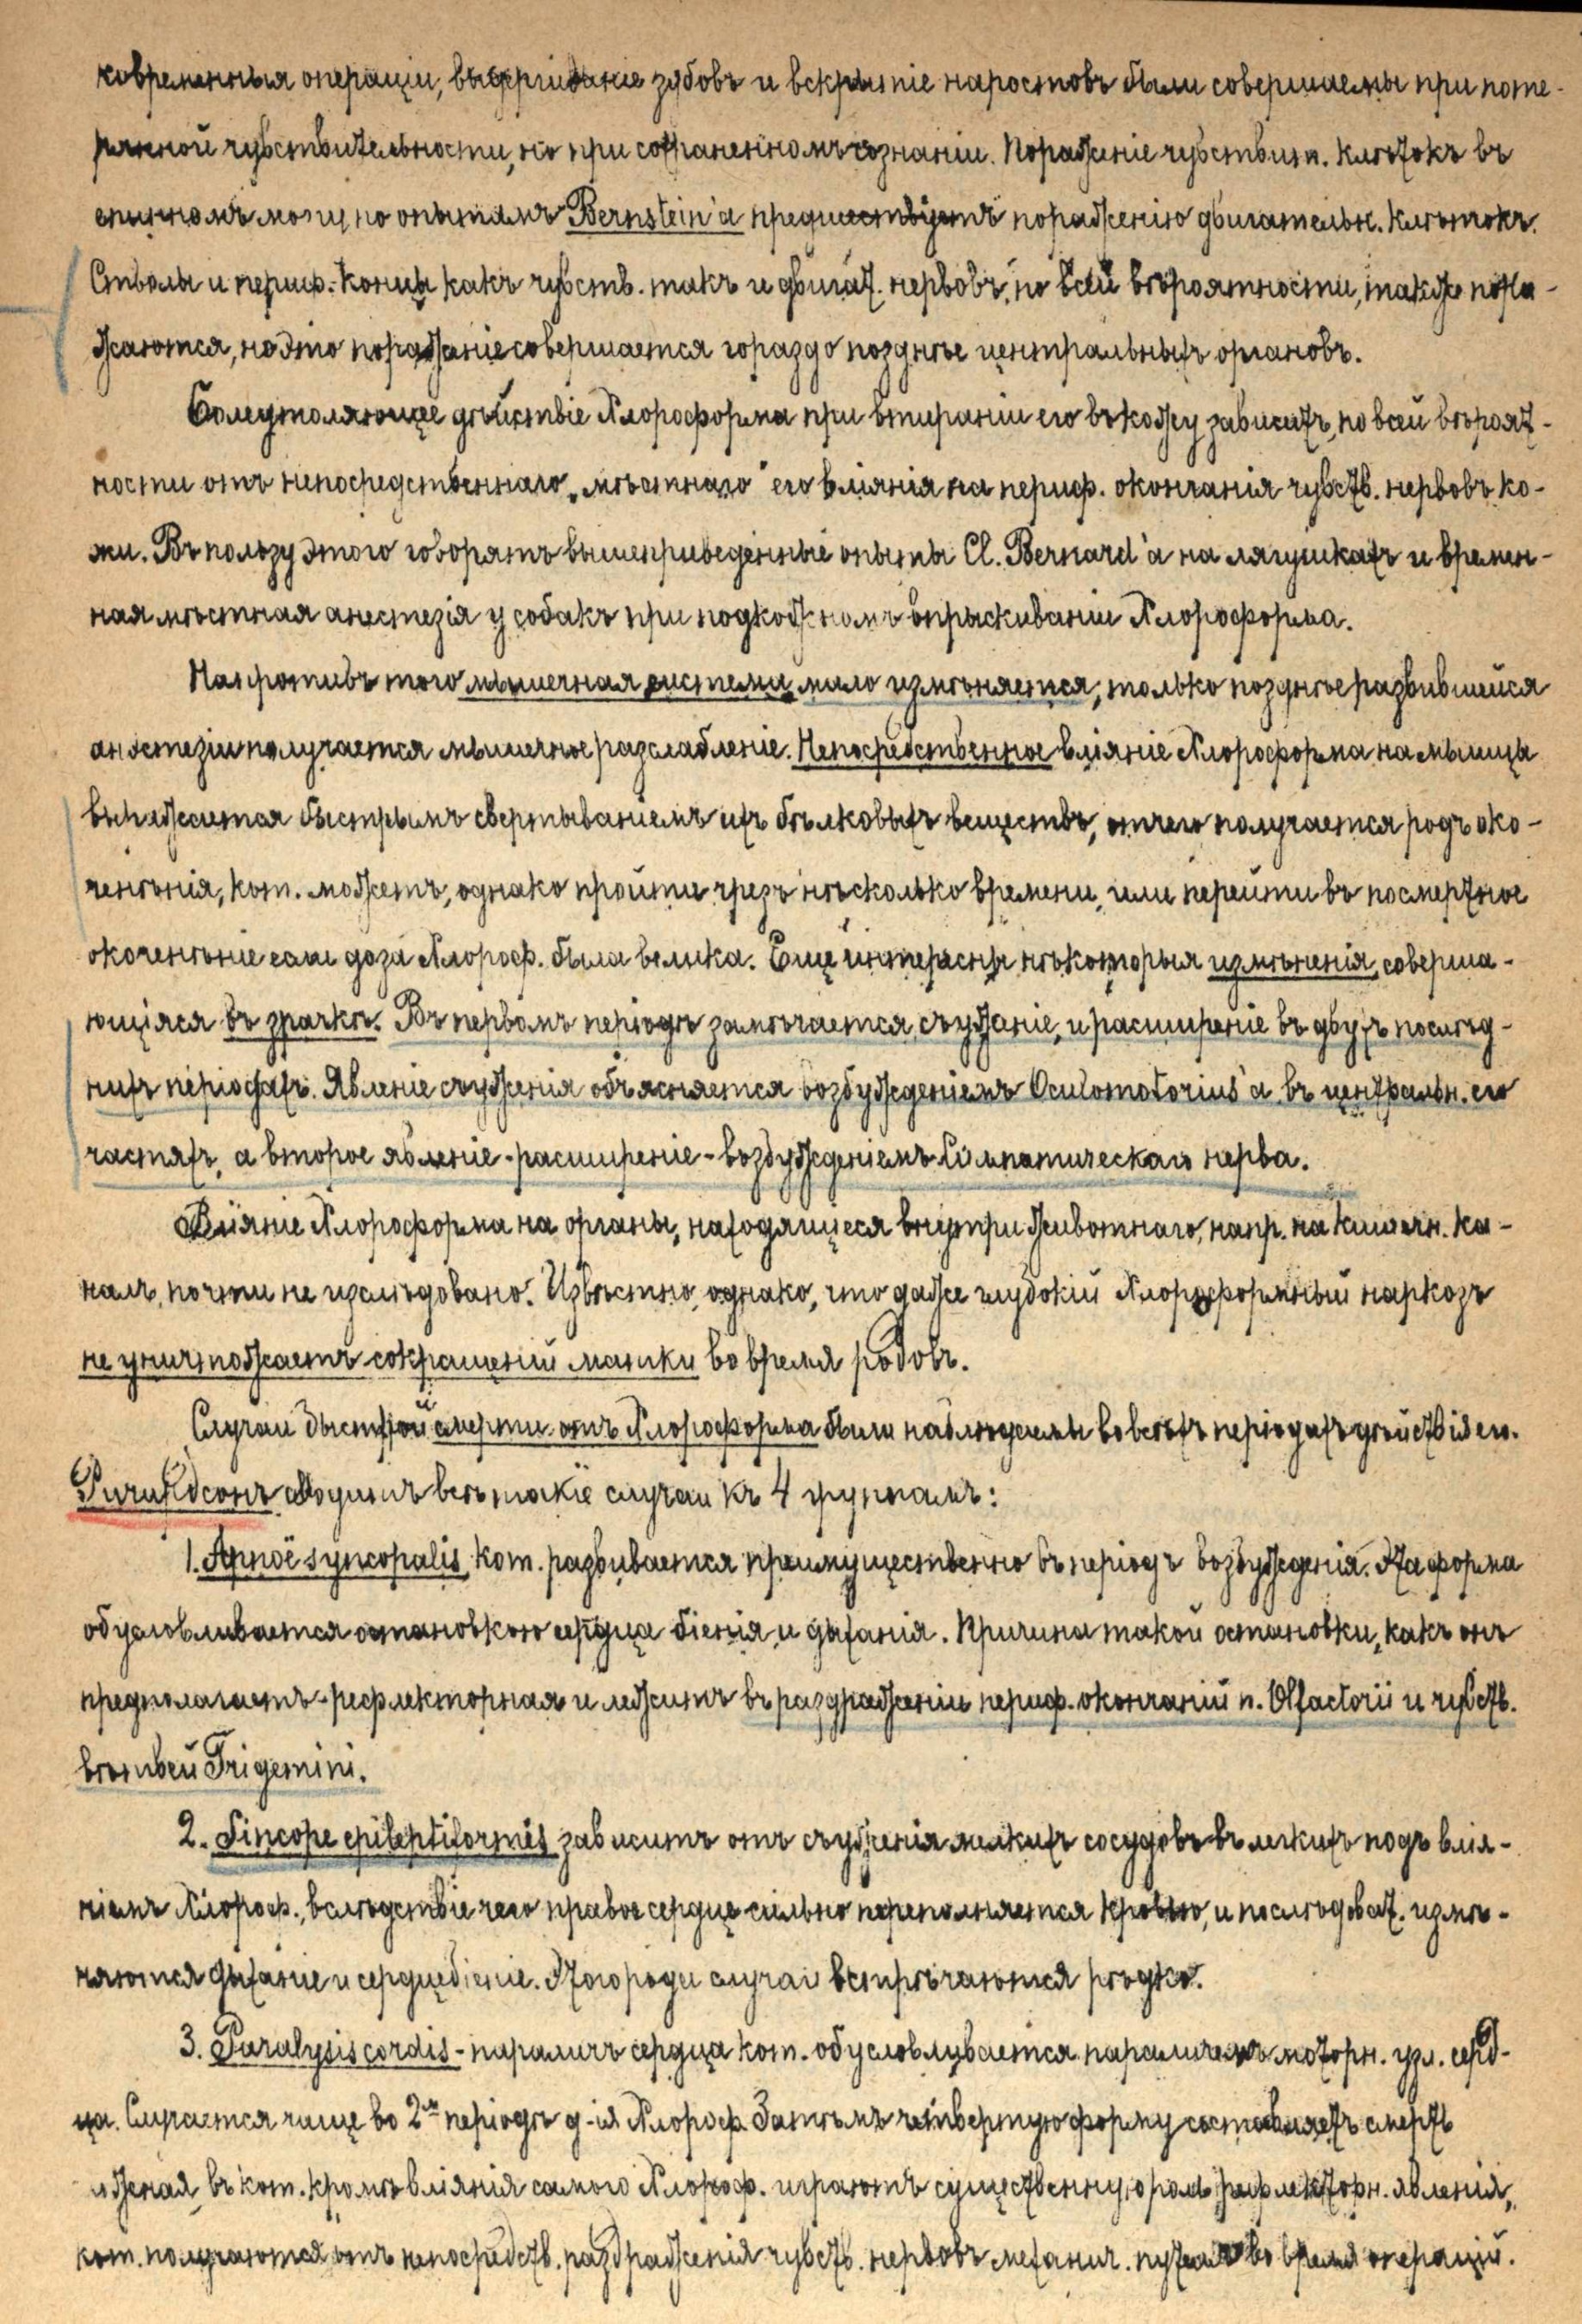 ковременныя операціи, выдергиванie зубовъ и вскрытіе наростовъ были совершаемы при поте-
рянной чувствительности, но при сохраненномъ сознаніи. Пораженіе чувствит. клѣтокъ въ
спинномъ мозгу по опытамъ Bernstein'a предшествуетъ пораженію двигательн. клѣтокъ.
Стволы и периф. концы какъ чувств. такъ и двигат. нервовъ, по всей вѣроятности, также пора-
жаются, но это пораженіе совершается гораздо позднѣе центральныхъ органовъ.
Болеутоляющее дѣйствіе Хлороформа при втираніи его въ кожу зависитъ, по всей вѣроят-
ности отъ непосредственнаго „мѣстнаго" его вліянія на периф. окончанія чувств. нервовъ ко-
жи. Въ пользу этого говорятъ вышеприведенные опыты Cl. Bernard'a на лягушкахъ и времен-
ная мѣстная анестезія у собакъ при подкожномъ впрыскиваніи Хлороформа.
Напротивъ того мышечная система мало измѣняется, только позднѣе развившейся
анэстезіи получается мышечное разслабленіе. Непосредственное вліяніе Хлороформа на мышцы
выражается быстрымъ свертываніемъ ихъ бѣлковыхъ веществъ, отчего получается родъ око-
ченѣнія, кот. можетъ, однако пройти чрезъ нѣсколько времени, или перейти въ посмертное
окоченѣніе если доза Хлороф. была велика. Еще интересны нѣкоторыя измѣненія, соверша-
ющіяся въ зрачкѣ. Въ первомъ періодѣ замѣчается съуженіе, и расширеніе въ двухъ послѣд-
нихъ періодахъ. Явленіе съуженія объясняется возбужденіемъ Oculomotorius'a въ центральн. его
частяхъ, а второе явленіе - расширеніе - возбужденіемъ Симпатическаго нерва.
Вліяніе Хлороформа на органы, находящіеся внутри животнаго, напр. на кишечн. ка-
налъ, почти не изслѣдовано. Извѣстно, однако, что даже глубокій Хлороформный наркозъ
не уничтожаетъ сокращеній матки во время родовъ.
Случаи быстрой смерти отъ Хлороформа были наблюдаемы во всѣхъ періодахъ дѣйствія его.
Ричардсонъ сводитъ всѣ такіе случаи къ 4 группамъ:
1. Apnoë syncopalis, кот. развивается преимущественно въ періодъ возбужденія. Эта форма
обусловливается остановкою сердца біенія и дыханія. Причина такой остановки, какъ онъ
предполагаетъ - рефлекторная и лежитъ въ раздраженіи периф. окончаній n. Olfactorii и чувств.
вѣтвей Trigemini.
2. Sincope epileptiformis зависитъ отъ съуженія мелкихъ сосудовъ въ легкихъ подъ влія-
ніемъ Хлороф., вслѣдствіе чего правое сердце сильно переполняется кровью, и послѣдоват. измѣ-
няются дыханіе и сердцебіеніе. Этого рода случаи встрѣчаются рѣдко.
3. Paralysis cordis - параличъ сердца кот. обусловливается параличемъ моторн. узл. серд-
ца. Случается чаще во 2мъ періодѣ д-ія Хлороф. Затѣмъ четвертую форму составляетъ смерть
въ кот. кромѣ вліянія самого Хлороф. играютъ существенную роль рефлекторн. явленія,
кот. получаются отъ непосредств. раздраженія чувств. нервовъ механич. путемъ во время операцій.